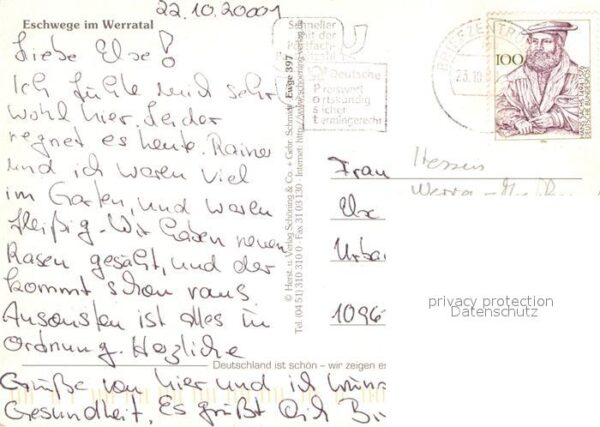 22.10.20001
Eschwege im Werratal
Liebe Else!
Ich fühle mich sehr
wohl hier. Leider
regnet es heute. Rainer
und ich waren viel
im Garten, und waren
fleißig. Wir haben neuen
Rasen gesäht, und der
kommt schon raus.
Ansonsten ist alles in
Ordnung. Herzliche
Grüße von hier und ich
Gesundheit. Es grüßt Dich
Deutschland ist schön – wir zeigen es
© Herst. u. Verlag Schöning & Co. + Gebr. Schmidt
Ewge 397
Tel. (04 51) 310 310 0 · Fax 31 03 130 · Internet: http://www.schoening-verlag.de
Schneller
mit der
Postfach-
Deutsche
Preiswert
ortskundig
sicher
termingerecht
BRIEFZENTRUM
23.10
100
DEUTSCHE BUNDESPOST
Frau
Else
Urba
1096
Hessen
Werra
privacy protection
Datenschutz